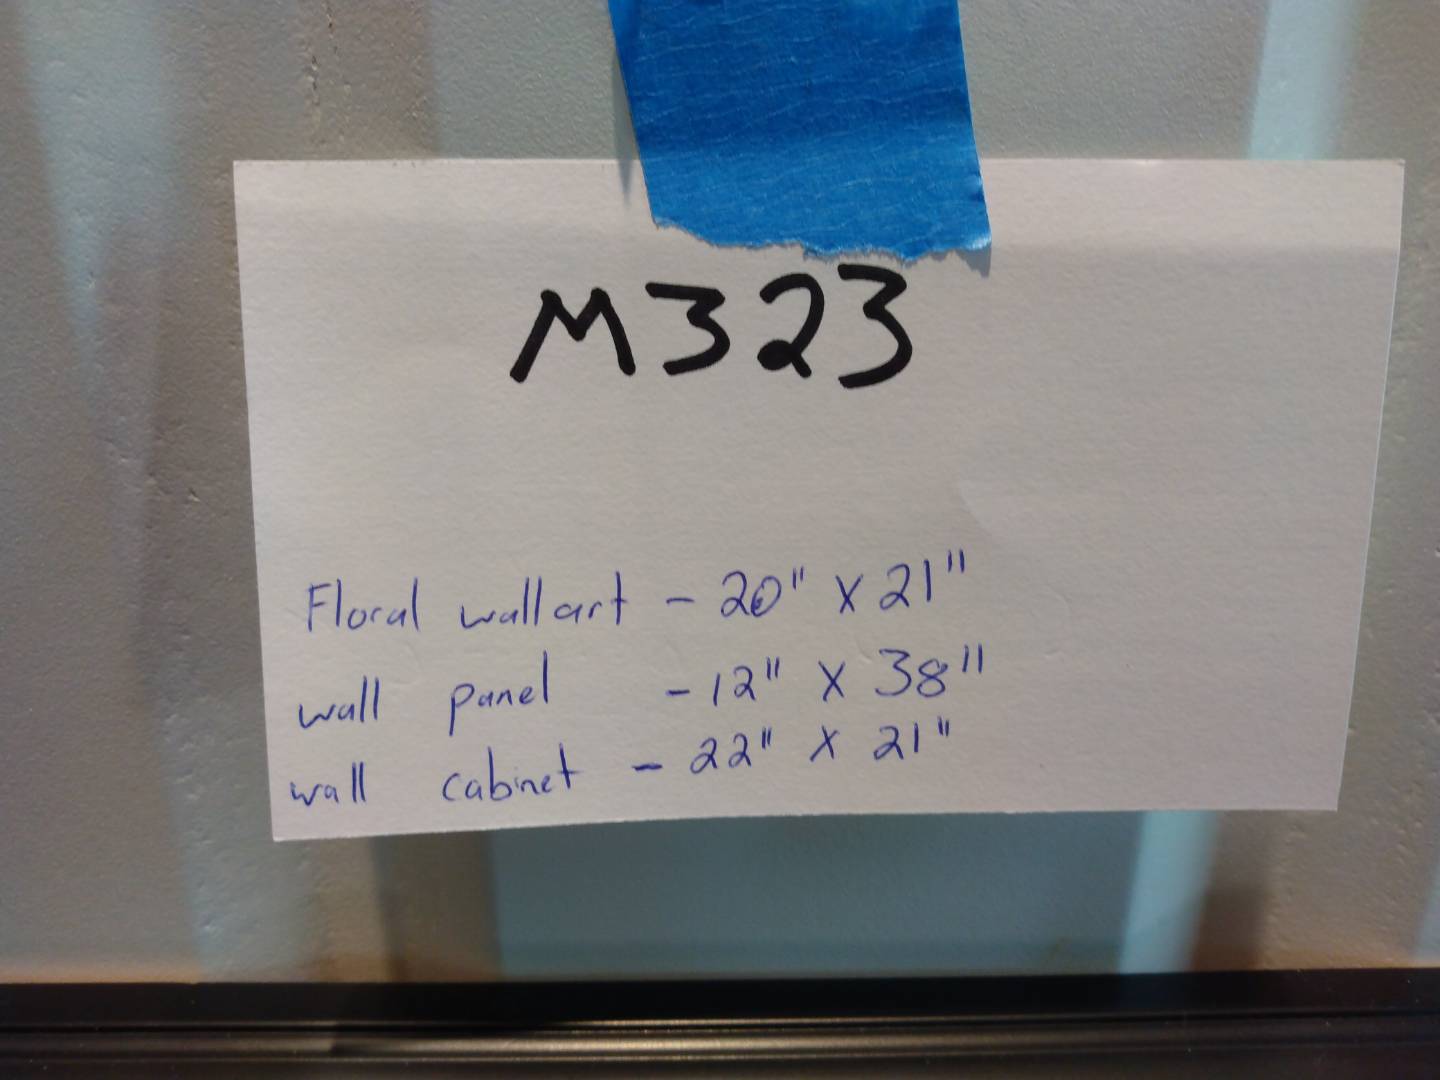 M323
Floral wall art - 20" X 21"
wall panel - 12" X 38"
wall cabinet - 22" X 21"